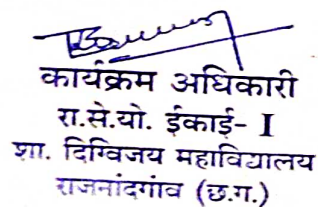 कार्यक्रम अधिकारी
रा.से.यो. ईकाई- I
शा. दिग्विजय महाविद्यालय
राजनांदगांव (छ.ग.)